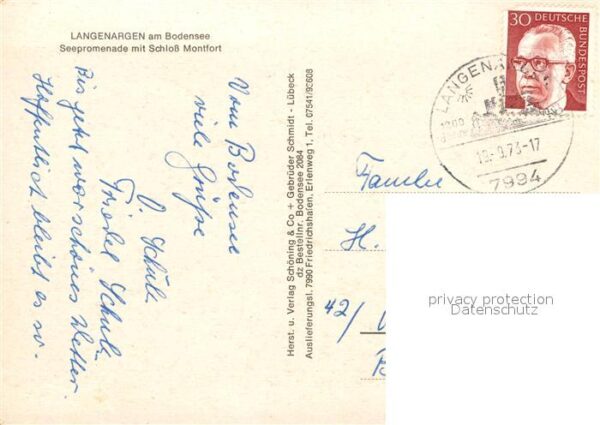 LANGENARGEN am Bodensee
Seepromenade mit Schloß Montfort
Vom Bodensee
viele Grüße
O. Schulz
Friedel Schulz
Bis jetzt war schönes Wetter.
Hoffentlich bleibt es so.
Herst. u. Verlag Schöning & Co + Gebrüder Schmidt - Lübeck
dz Bestellnr. Bodensee 2084
Auslieferungsl. 7990 Friedrichshafen, Erlenweg 1, Tel. 07541/92608
30 DEUTSCHE
BUNDESPOST
LANGENAR
1200
-9.73-17
7994
Familie
H.
42/
privacy protection
Datenschutz